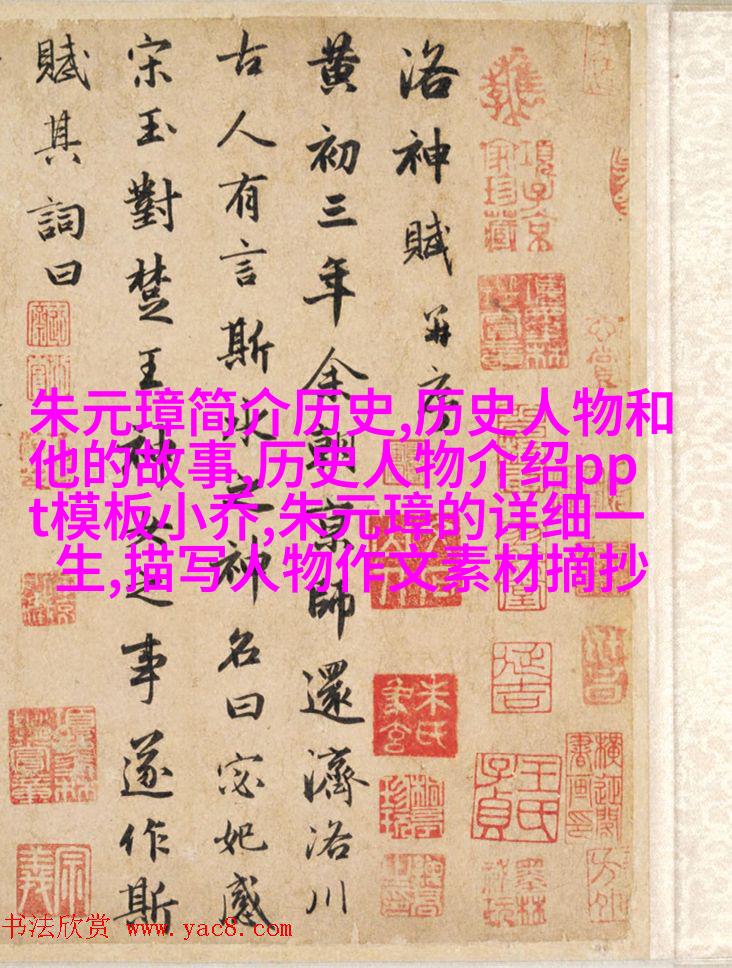 洛神賦并序
黄初三年余朝京師還濟洛川
古人有言斯水之神名曰宓妃感
宋玉對楚王神女之事遂作斯
賦其詞曰
項子京家珍藏
朱元璋简介历史,历史人物和
他的故事,历史人物介绍pp
t模板小乔,朱元璋的详细一
生,描写人物作文素材摘抄
朱氏象玄
书法欣赏 www.yac8.com